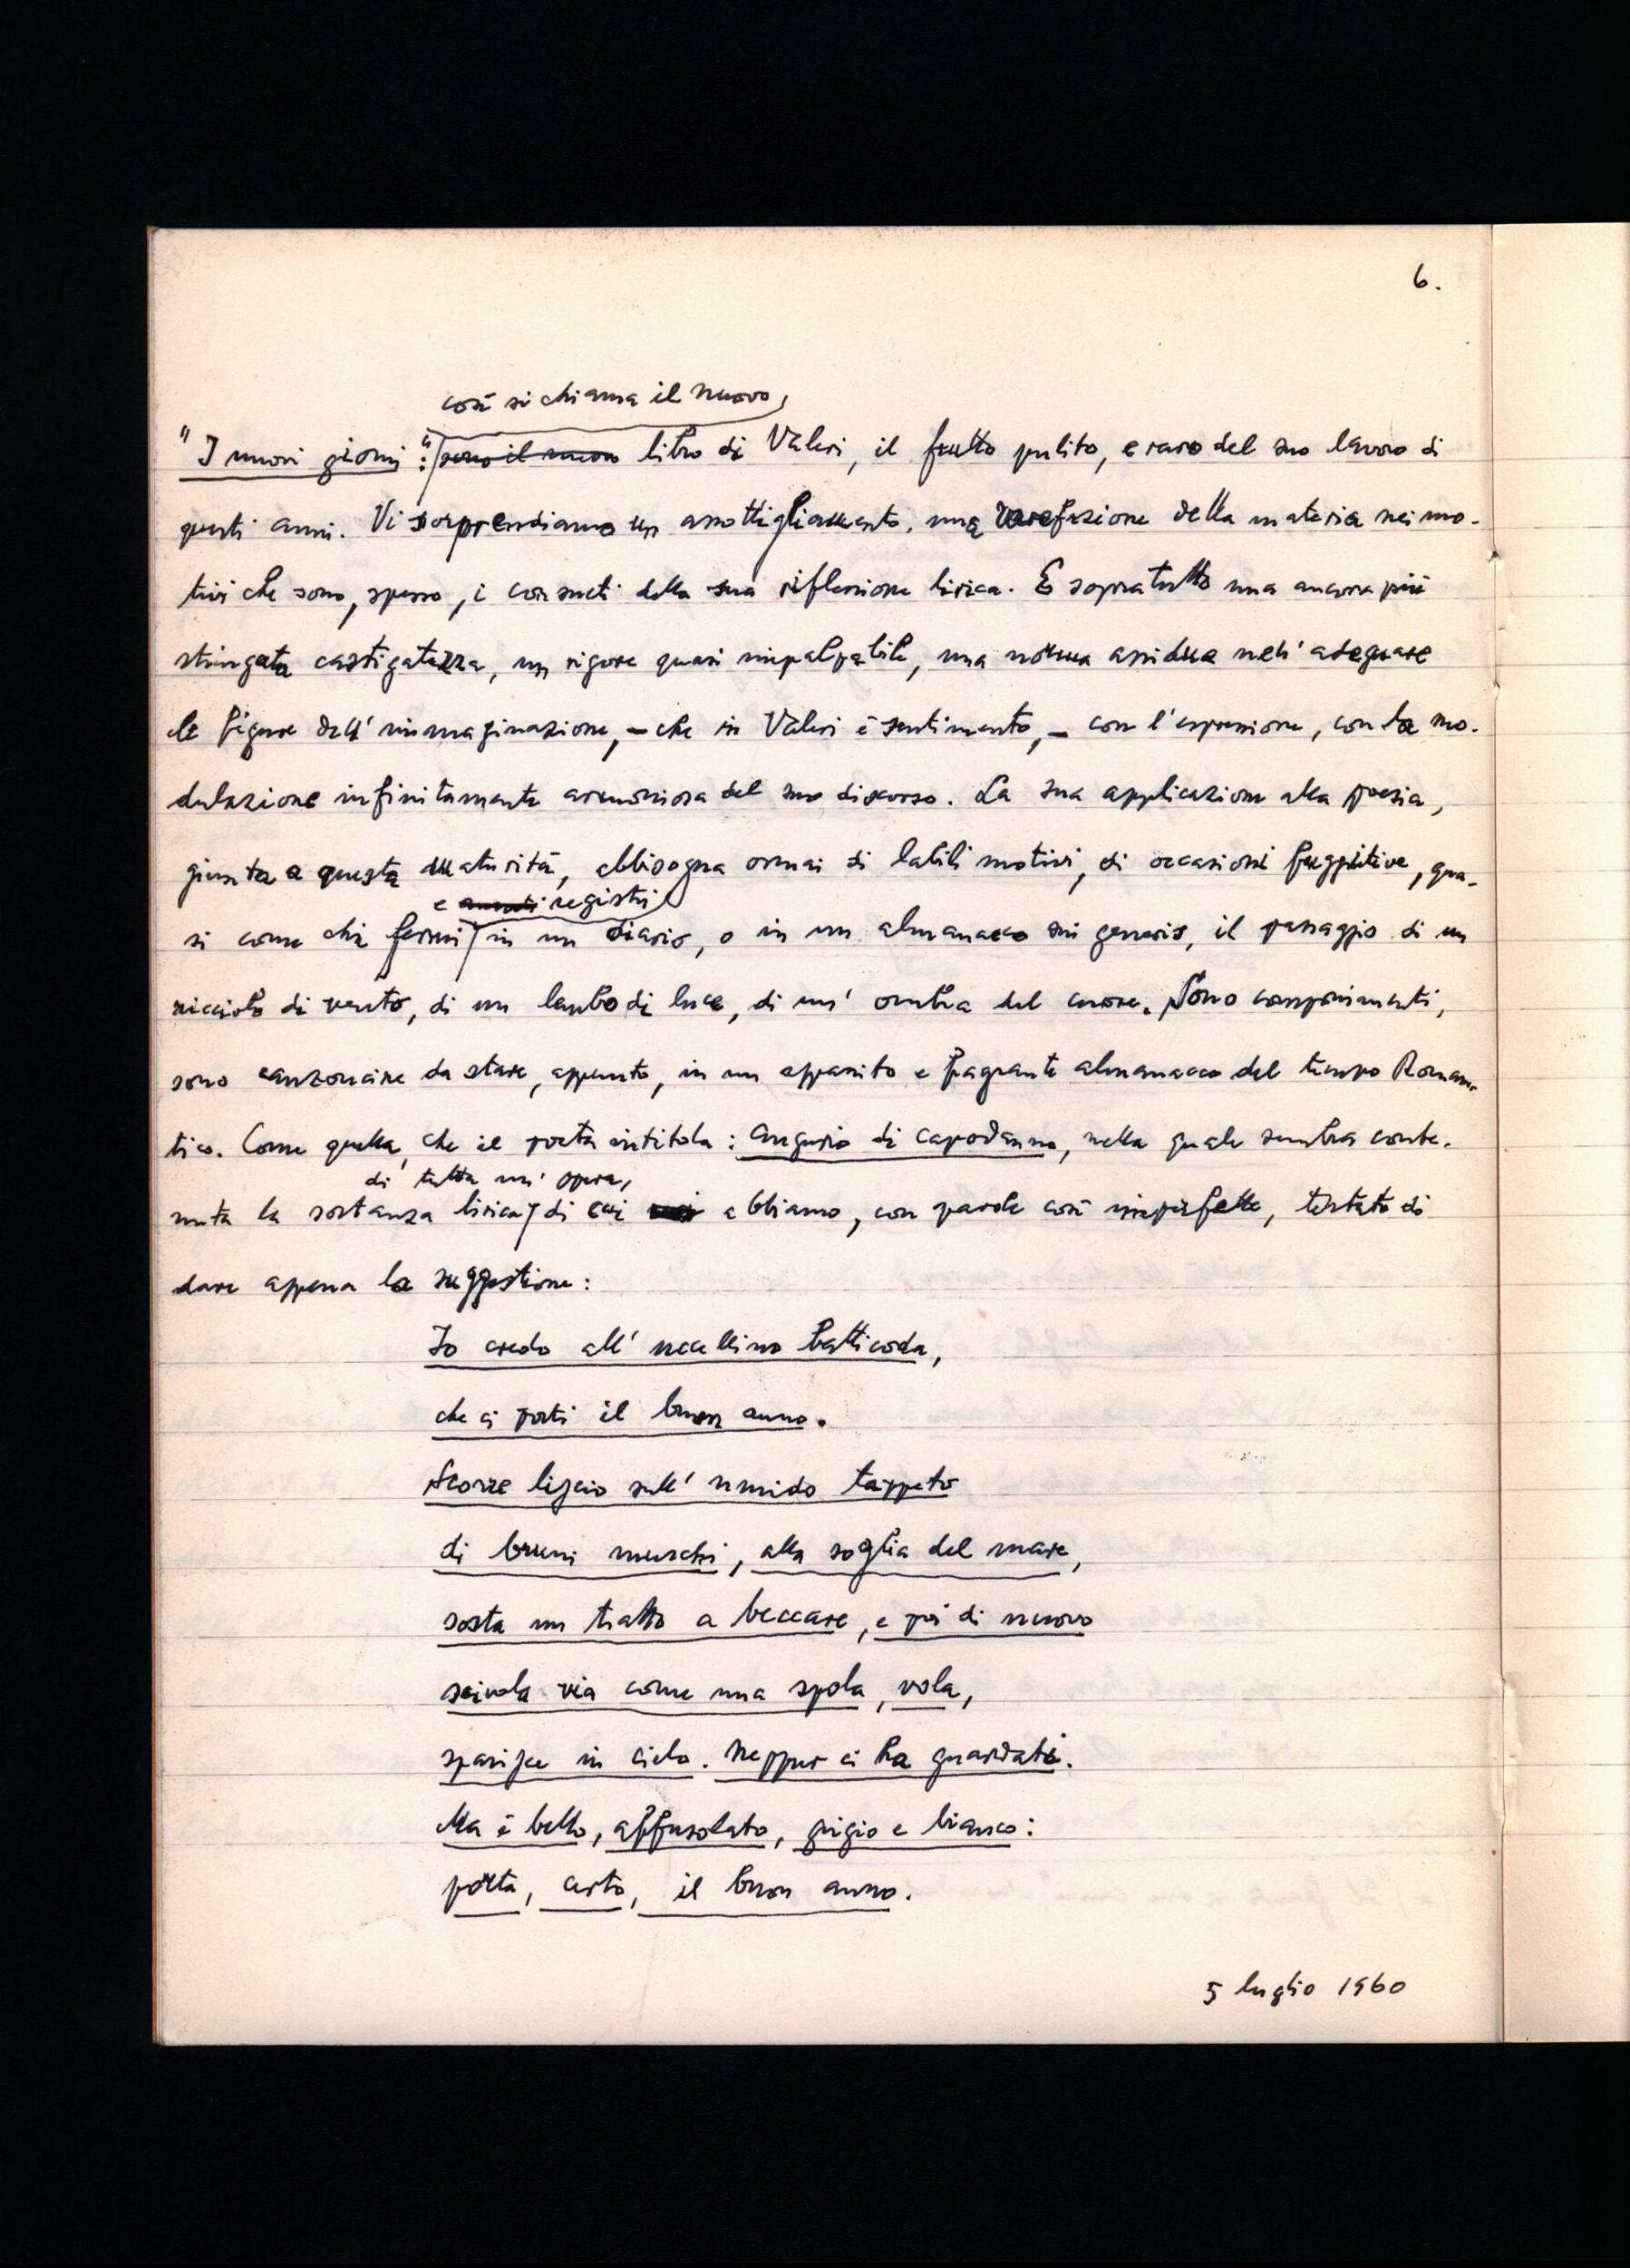 6.
così si chiama il nuovo,
"I nuovi giorni": sono il nuovo libro di Valeri, il frutto pulito, e raro del suo lavoro di
questi anni. Vi sorprendiamo un assottigliamento, una rarefazione della materia nei mo-
tivi che sono, spesso, i consueti della sua riflessione lirica. E sopratutto una ancora più
stringata castigatezza, un rigore quasi impalpabile, una norma assidua nell'adeguare
le figure dell'immaginazione, - che in Valeri è sentimento, - con l'espressione, con la mo-
dulazione infinitamente armoniosa del suo discorso. La sua applicazione alla poesia,
giunta a questa maturità, abbisogna ormai di labili motivi, di occasioni fuggitive, qua-
e registri
si come chi fermi in un diario, o in un almanacco sui generis, il passaggio di un
ricciolo di vento, di un lembo di luce, di un'ombra del cuore. Sono componimenti,
sono canzoncine da stare, appunto, in un appassito e fragrante almanacco del tempo Roman-
tico. Come quella, che il poeta intitola: Augurio di capodanno, nella quale sembra conte-
di tutta un'opera,
nuta la sostanza lirica di cui abbiamo, con parole così imperfette, tentato di
dare appena la suggestione:
Io credo all'uccellino batticoda,
che ci porti il buon anno.
Scorre liscio sull'umido tappeto
di bruni muschi, alla soglia del mare,
sosta un tratto a beccare, e poi di nuovo
scivola via come una spola, vola,
sparisce in cielo. Neppur ci ha guardati.
Ma è bello, affusolato, grigio e bianco:
porta, certo, il buon anno.
5 luglio 1960